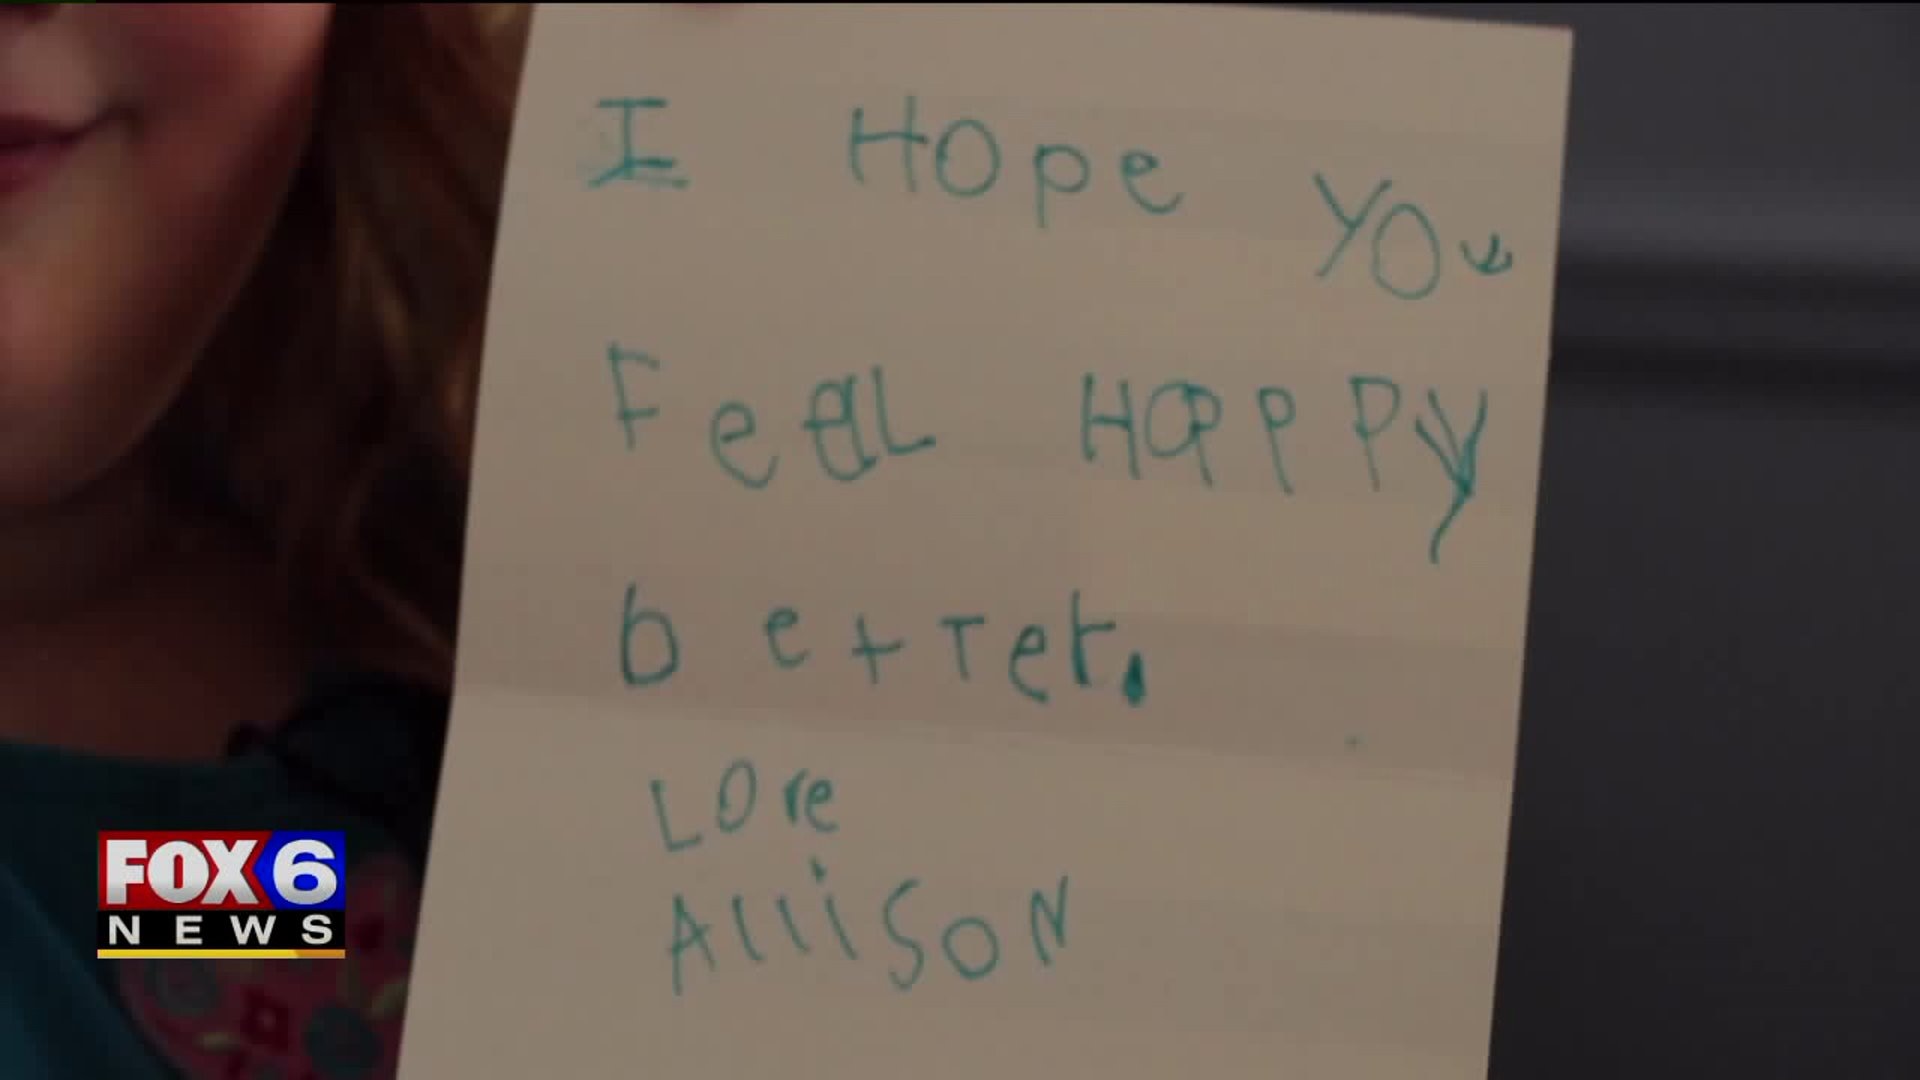 I HOpe YOu
FeeL HAPPY
better.
LOve
AlliSoN
FOX 6
NEWS